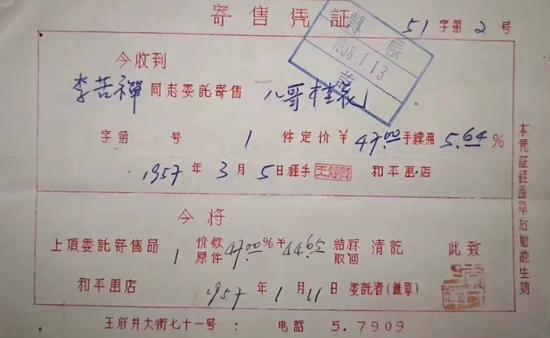 寄售凭証
51字第2号
轉帳
1958.1.13
今收到
李苦禪同志委託寄售八哥
字第 号 1 件定价￥47.00手續費5.64%
1957年3月5日經手 和平画店
今将
上項委託寄售品1价款原件47.00%￥44.65結算取回清訖 此致
和平画店 1957年1月11日委託者(蓋章)
王府井大街七十一号: 电話 5.7909
本凭証經蓋章后始能生効